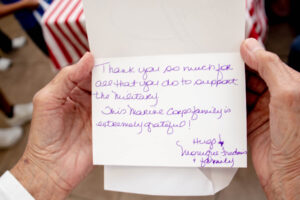 Thank you so much for
all that you do to support
the military.
This Marine Corps family is
extremely grateful!
Hugs!
Monique
+ family